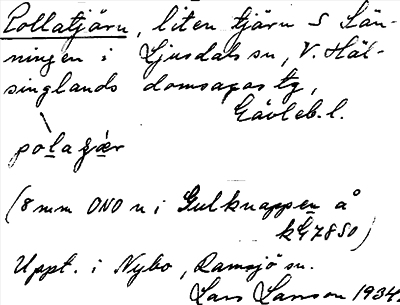 Pollatjärn, liten tjärn S Län-
ningen i Ljusdals sn, V. Häl-
singlands domsagas tg,
Gävleb. l.
(8 mm ONO n i Gulknappen å
kG 7850)
Uppt. i Nybo, Ramsjö sn.
Lars Larsson 1934